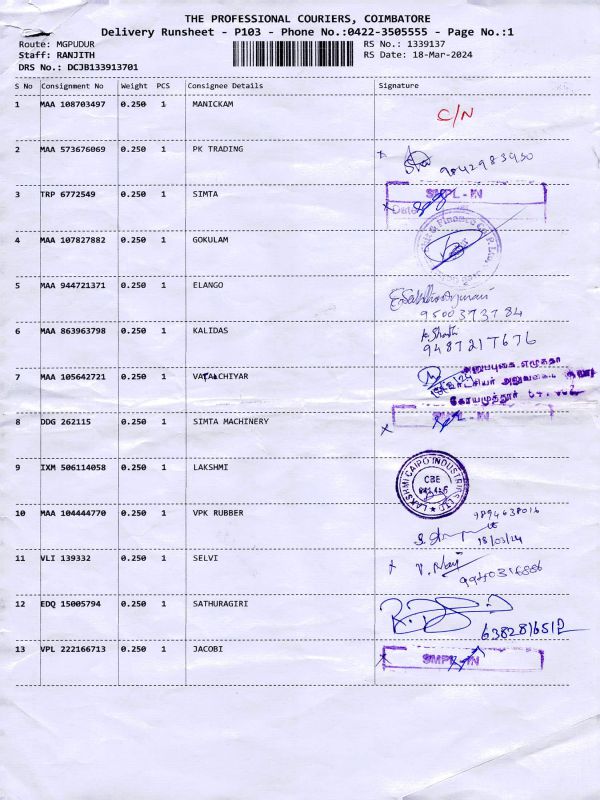 THE PROFESSIONAL COURIERS, COIMBATORE
Delivery Runsheet - P103 - Phone No.:0422-3505555 - Page No.:1
Route: MGPUDUR RS No.: 1339137
Staff: RANJITH RS Date: 18-Mar-2024
DRS No.: DCJB133913701
S No Consignment No Weight PCS Consignee Details Signature
1 MAA 108703497 0.250 1 MANICKAM C/N
2 MAA 573676069 0.250 1 PK TRADING 9842983950
3 TRP 6772549 0.250 1 SIMTA SMPL - IN
Date
4 MAA 107827882 0.250 1 GOKULAM
5 MAA 944721371 0.250 1 ELANGO
9500373784
6 MAA 863963798 0.250 1 KALIDAS
9487217676
7 MAA 105642721 0.250 1
கோயமுத்தூர்
8 DDG 262115 0.250 1 SIMTA MACHINERY SMPL - IN
9 IXM 506114058 0.250 1 LAKSHMI LAKSHMI CAIPO INDUSTRIES LTD
CBE
10 MAA 104444770 0.250 1 VPK RUBBER 9894638016
18/03/24
11 VLI 139332 0.250 1 SELVI
12 EDQ 15005794 0.250 1 SATHURAGIRI
13 VPL 222166713 0.250 1 JACOBI SMPL - IN